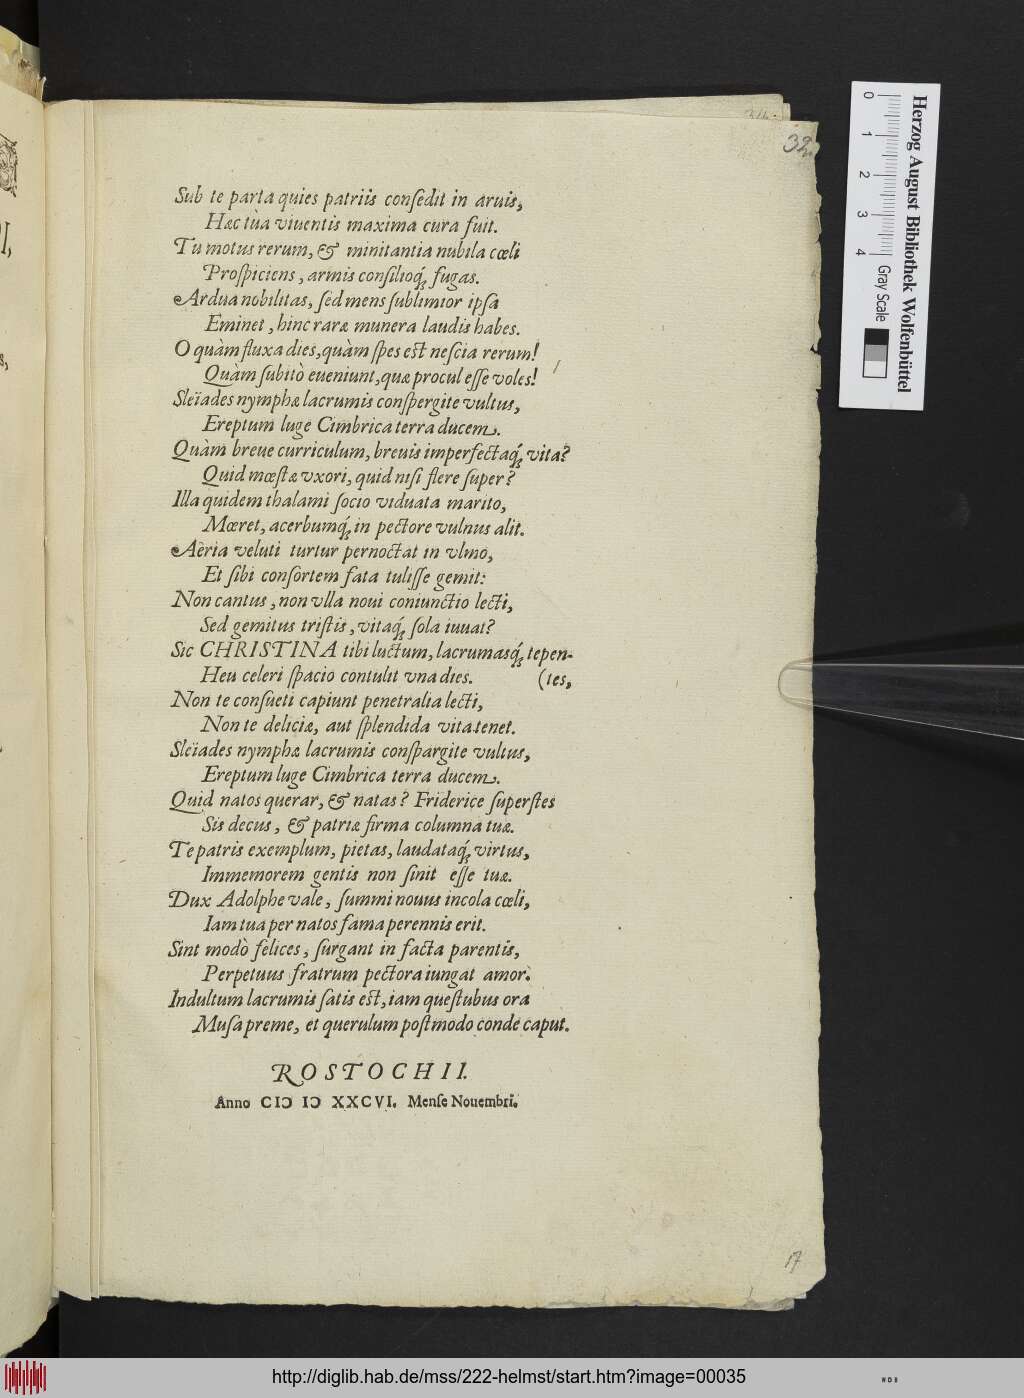 32.
Sub te parta quies patriis conſedit in aruis,
Hæc tùa viuentis maxima cura fuit.
Tu motus rerum, & minitantia nubila cœli
Proſpiciens, armis conſilioq́; fugas.
Ardua nobilitas, ſed mens ſublimior ipſa
Eminet, hinc raræ munera laudis habes.
O quàm fluxa dies, quàm ſpes eſt neſcia rerum!
Quàm ſubitò eueniunt, quæ procul eſſe voles!
Sleïades nymphæ lacrumis conſpergite vultus,
Ereptum luge Cimbrica terra ducem.
Quàm breue curriculum, breuis imperfectaq́; vita?
Quid mœſtæ vxori, quid niſi flere ſuper?
Illa quidem thalami ſocio viduata marito,
Mœret, acerbumq́; in pectore vulnus alit.
Aëria veluti turtur pernoctat in vlmo,
Et ſibi conſortem fata tuliſſe gemit:
Non cantus, non vlla noui coniunctio lecti,
Sed gemitus triſtis, vitaq́; ſola iuuat?
Sic CHRISTINA tibi luctum, lacrumasq́; tepen-
Heu celeri ſpacio contulit vna dies. (tes,
Non te conſueti capiunt penetralia lecti,
Non te deliciæ, aut ſplendida vita tenet.
Sleïades nymphæ lacrumis conſpargite vultus,
Ereptum luge Cimbrica terra ducem.
Quid natos querar, & natas? Friderice ſuperſtes
Sis decus, & patriæ firma columna tuæ.
Te patris exemplum, pietas, laudataq́; virtus,
Immemorem gentis non ſinit eſſe tuæ.
Dux Adolphe vale, ſummi nouus incola cœli,
Iam tua per natos fama perennis erit.
Sint modò felices, ſurgant in facta parentis,
Perpetuus fratrum pectora iungat amor.
Indultum lacrumis ſatis eſt, iam queſtubus ora
Muſa preme, et querulum poſtmodo conde caput.
ROSTOCHII.
Anno CIↃ IↃ XXCVI. Menſe Nouembri.
17
0 1 2 3 4
Herzog August Bibliothek Wolfenbüttel
Gray Scale
http://diglib.hab.de/mss/222-helmst/start.htm?image=00035